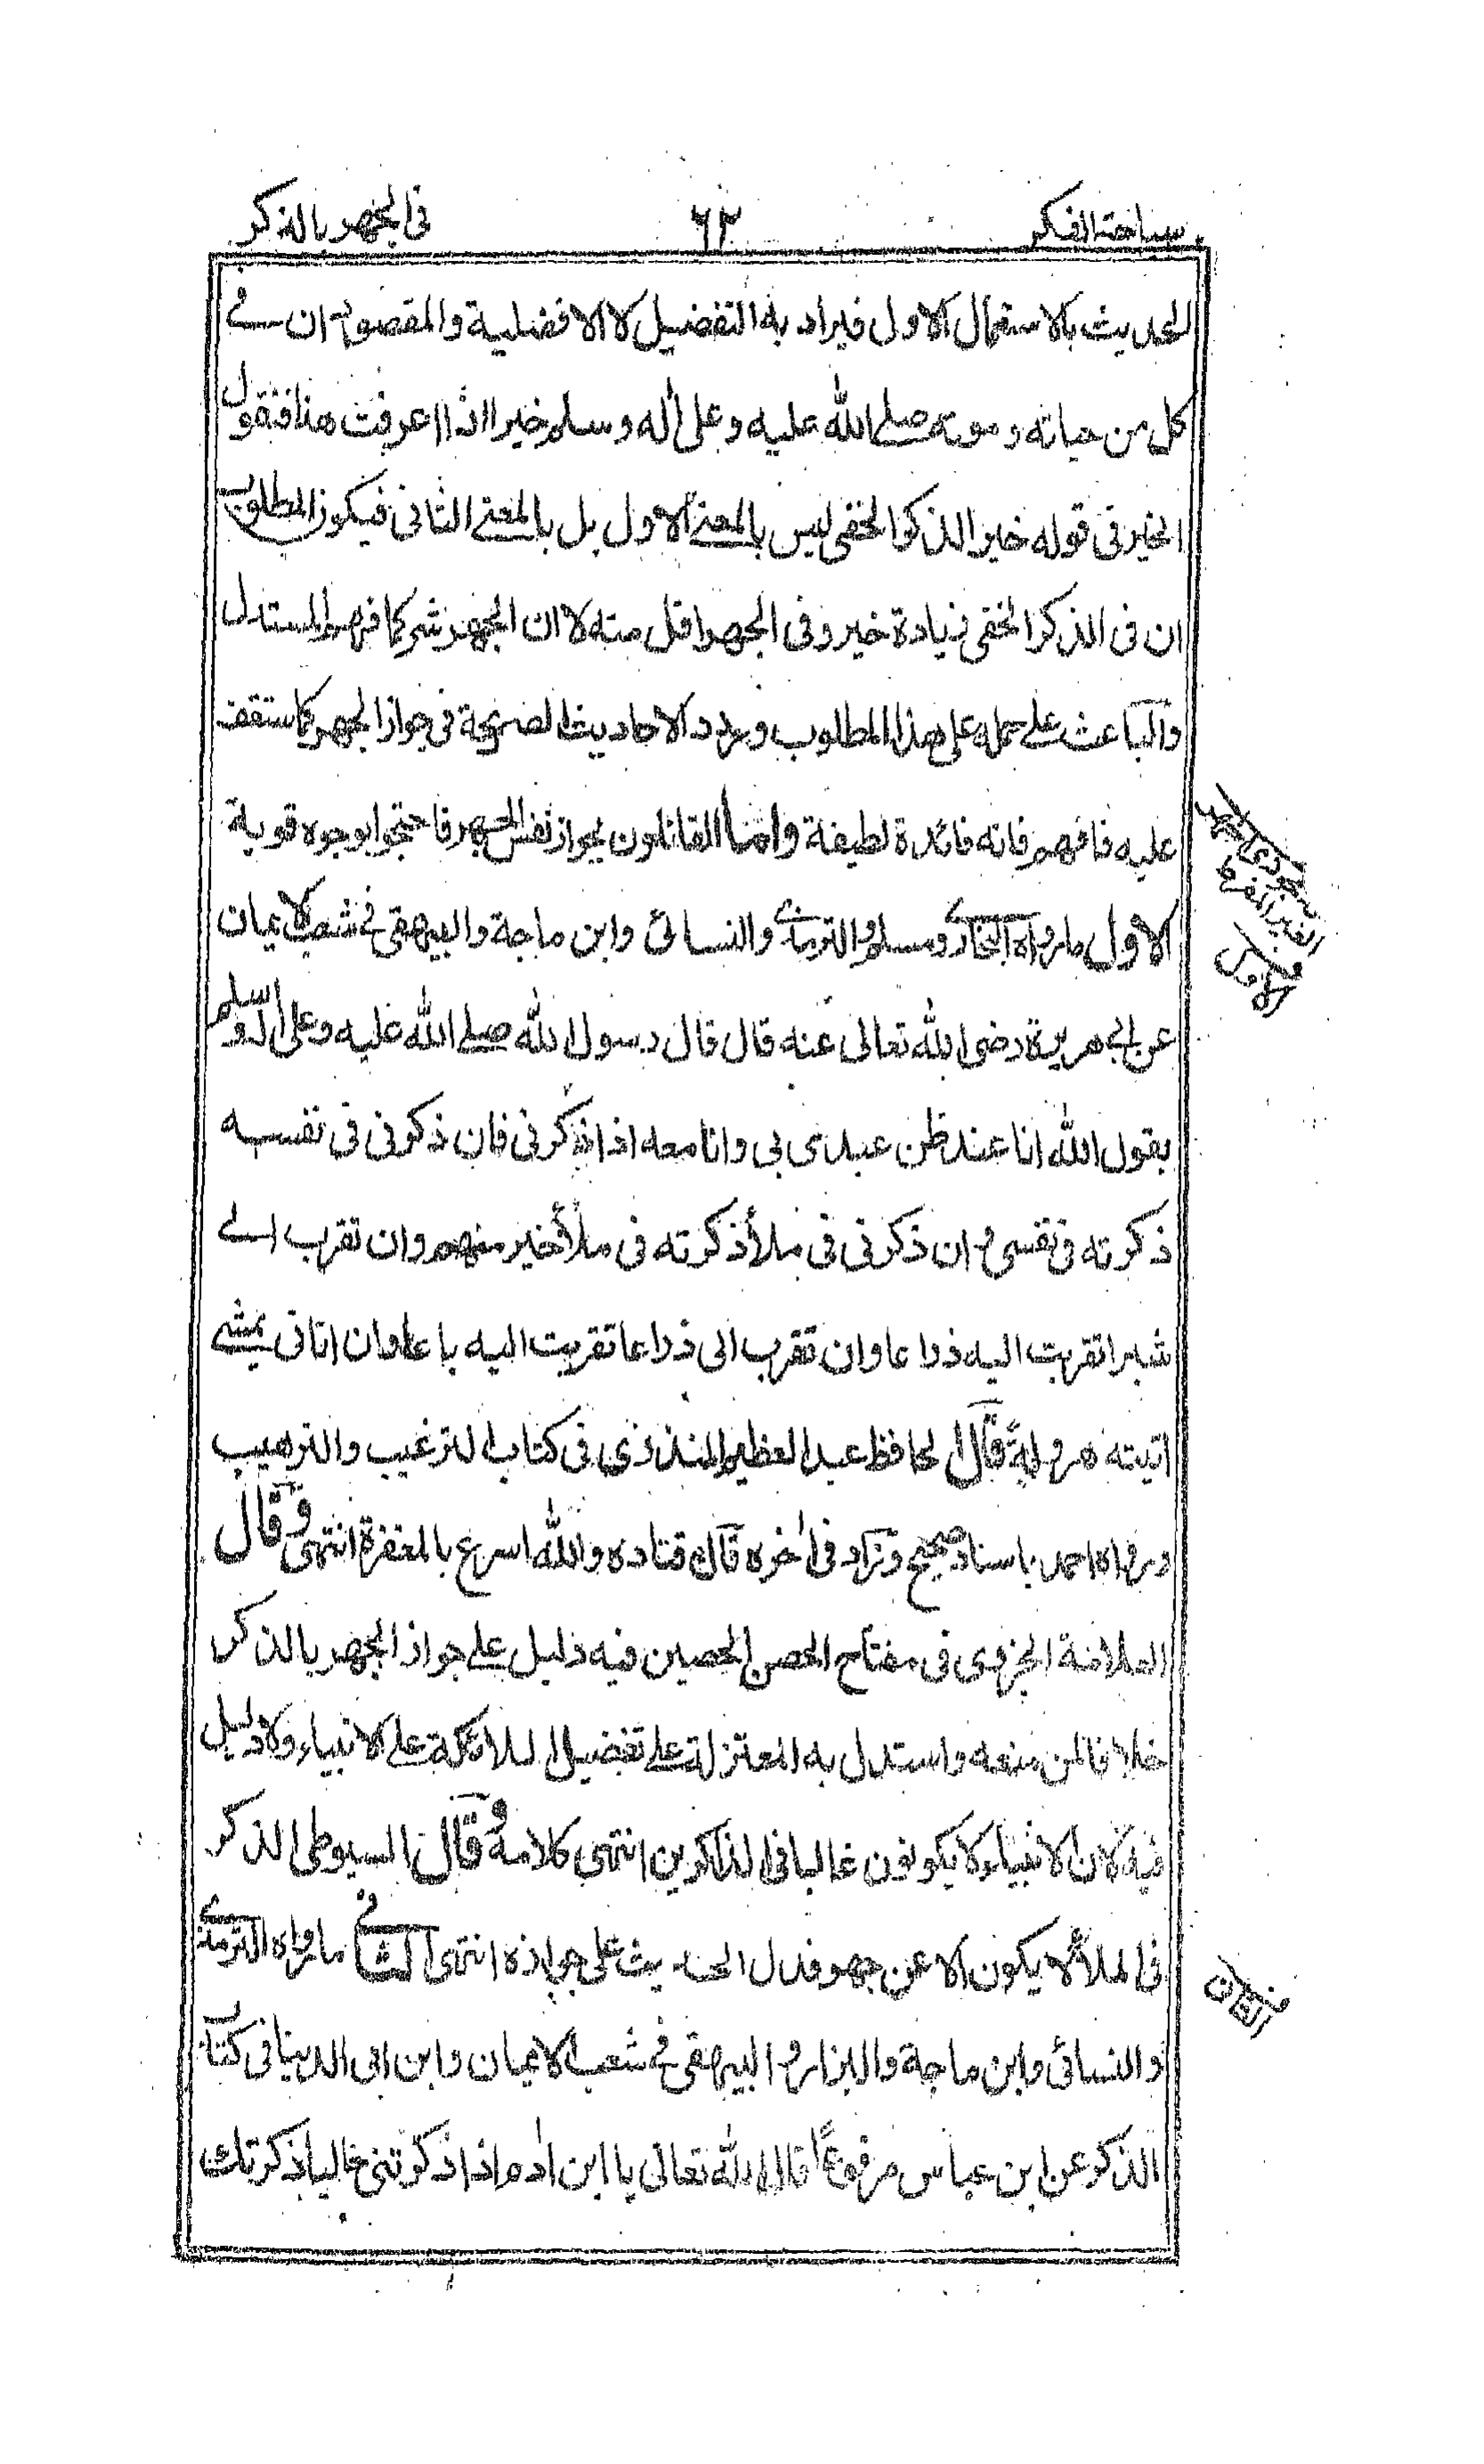 سباحة الفكر ٦٢ فى الجهر بالذكر
الحديث بالاستعمال الاول فيراد به التفضيل لا الافضلية والمقصود ان فے
كل من حياته وموته صلے الله عليه وعلى اٰله وسلم خيرا اذا عرفت هذا فنقول
الخير فى قوله خير الذكر الخفى ليس بالمعنے الاول بل بالمعنے الثانى فيكون المطلوب
ان فى الذكر الخفى زيادة خير وفى الجهر اقل منه لا ان الجهر شر كما فهم المستدل
والباعث علے حمله على هذا المطلوب ورود الاحاديث الصريحة فى جواز الجهر كما ستقف
عليه فافهم فانه فائدة لطيفة واما القائلون بجواز نفس الجهر فاحتجوا بوجوه قوية
الاول ما رواه البخارے ومسلم والترمذے والنسائى وابن ماجة والبيهقى فے شعب الايمان
عن ابى هريرة رضى الله تعالى عنه قال قال رسول الله صلے الله عليه وعلى اٰله وسلم
يقول الله انا عند ظن عبدى بى وانا معه اذا ذكرنى فان ذكرنى فى نفسه
ذكرته فى نفسى وان ذكرنى فى ملأ ذكرته فى ملأ خير منهم وان تقرب الے
شبرا تقربت اليه ذراعا وان تقرب الى ذراعا تقربت اليه باعا وان اتانى يمشے
اتيته هرولة قال الحافظ عبد العظيم المنذرى فى كتاب الترغيب والترهيب
ورواه احمد باسناد صحيح وزاد فى اٰخره قال قتاده والله اسرع بالمغفرة انتهى وقال
العلامة الجزرى فى مفتاح الحصن الحصين فيه دليل علے جواز الجهر بالذكر
خلافا لمن منعه واستدل به المعتزلة علے تفضيل الملائكة علے الانبياء ولا دليل
فيه لان الانبياء لا يكونون غالبا فى الذاكرين انتهى كلامه وقال السيوطى الذكر
فى الملأ لا يكون الا عن جهر فدل الحديث على جوازه انتهى الثانے ما رواه الترمذے
والنسائى وابن ماجة والبزار والبيهقى فے شعب الايمان وابن ابى الدنيا فى كتاب
الذكر عن ابن عباس مرفوعًا قال الله تعالى يا ابن اٰدم اذا ذكرتنى خاليا ذكرتك
الغير المفرط
الاول